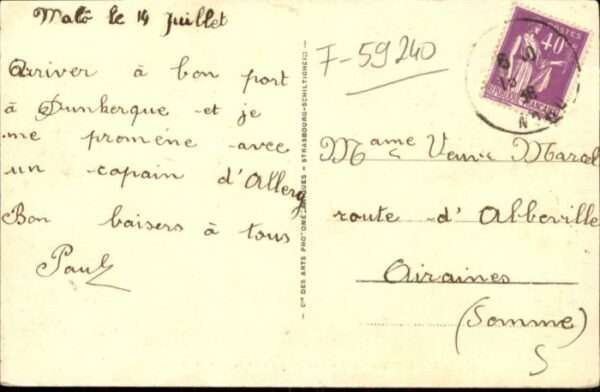 Malô le 14 juillet
Arriver à bon port
à Dunkerque et je
me promène avec
un copain d'Allery
Bon baisers à tous
Paul
F-59240
Cie DES ARTS PHOTOMÉCANIQUES - STRASBOURG-SCHILTIGHEIM
POSTES
40
RÉPUBLIQUE FRANÇAISE
Mame Veuve Marcel
route d'Abbeville
Airaines
(Somme)
S